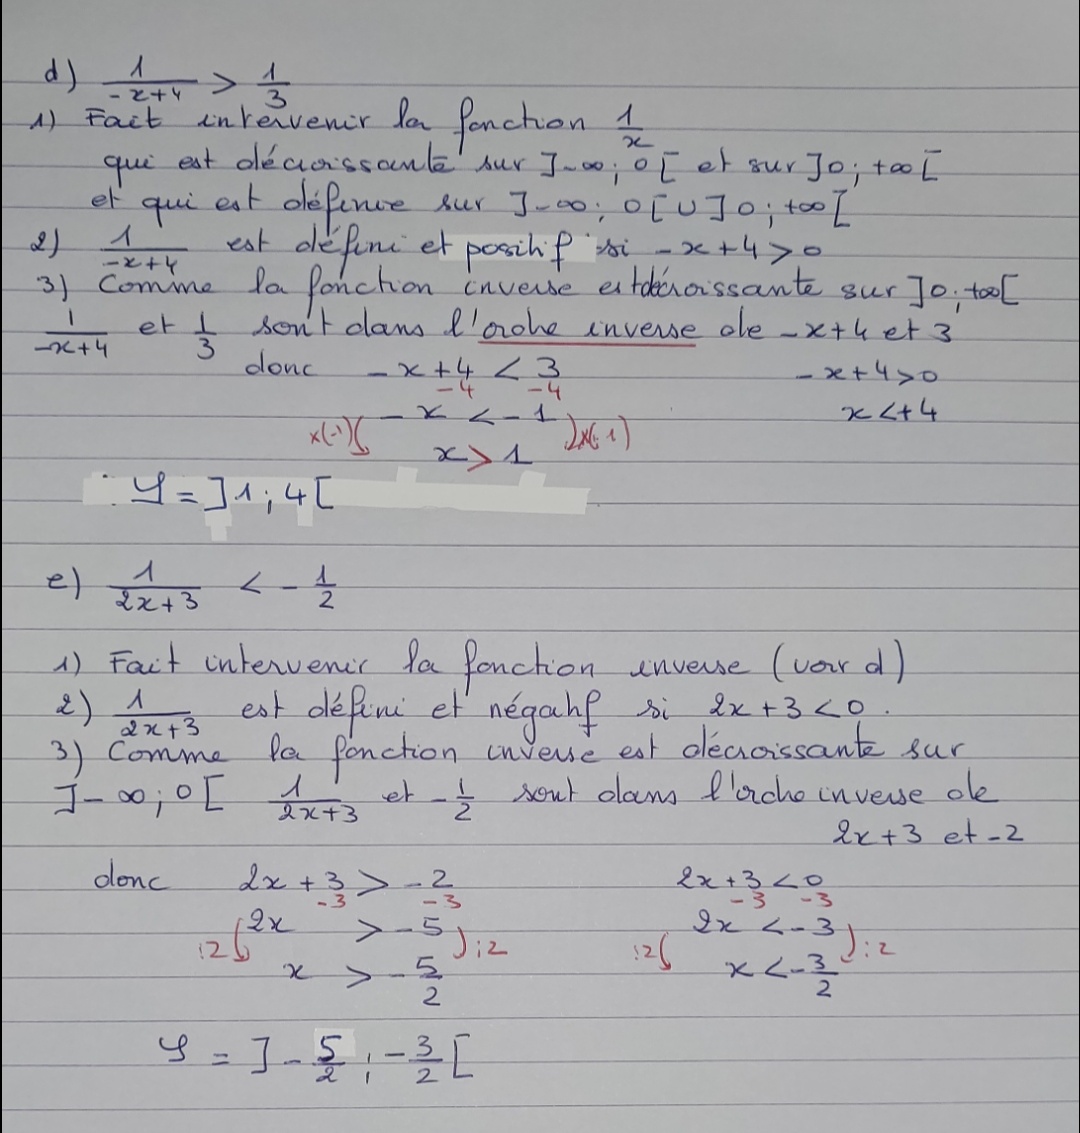 d) 1/(-x+4) > 1/3
1) Fait intervenir la fonction 1/x
qui est décroissante sur ]-∞; 0[ et sur ]0; +∞[
et qui est définie sur ]-∞; 0[ U ]0; +∞[
2) 1/(-x+4) est défini et positif si -x+4>0
3) Comme la fonction inverse est décroissante sur ]0; +∞[
1/(-x+4) et 1/3 sont dans l'ordre inverse de -x+4 et 3
donc -x+4 < 3 -x+4>0
-4 -4
-x < -1 x<+4
x(-1) x(-1)
x > 1
S = ]1; 4[
e) 1/(2x+3) < -1/2
1) Fait intervenir la fonction inverse (voir d)
2) 1/(2x+3) est défini et négatif si 2x+3<0.
3) Comme la fonction inverse est décroissante sur
]-∞; 0[ 1/(2x+3) et -1/2 sont dans l'ordre inverse de
2x+3 et -2
donc 2x+3 > -2 2x+3<0
-3 -3 -3 -3
2x > -5 2x < -3
:2 :2 :2 :2
x > -5/2 x < -3/2
S = ]-5/2; -3/2[